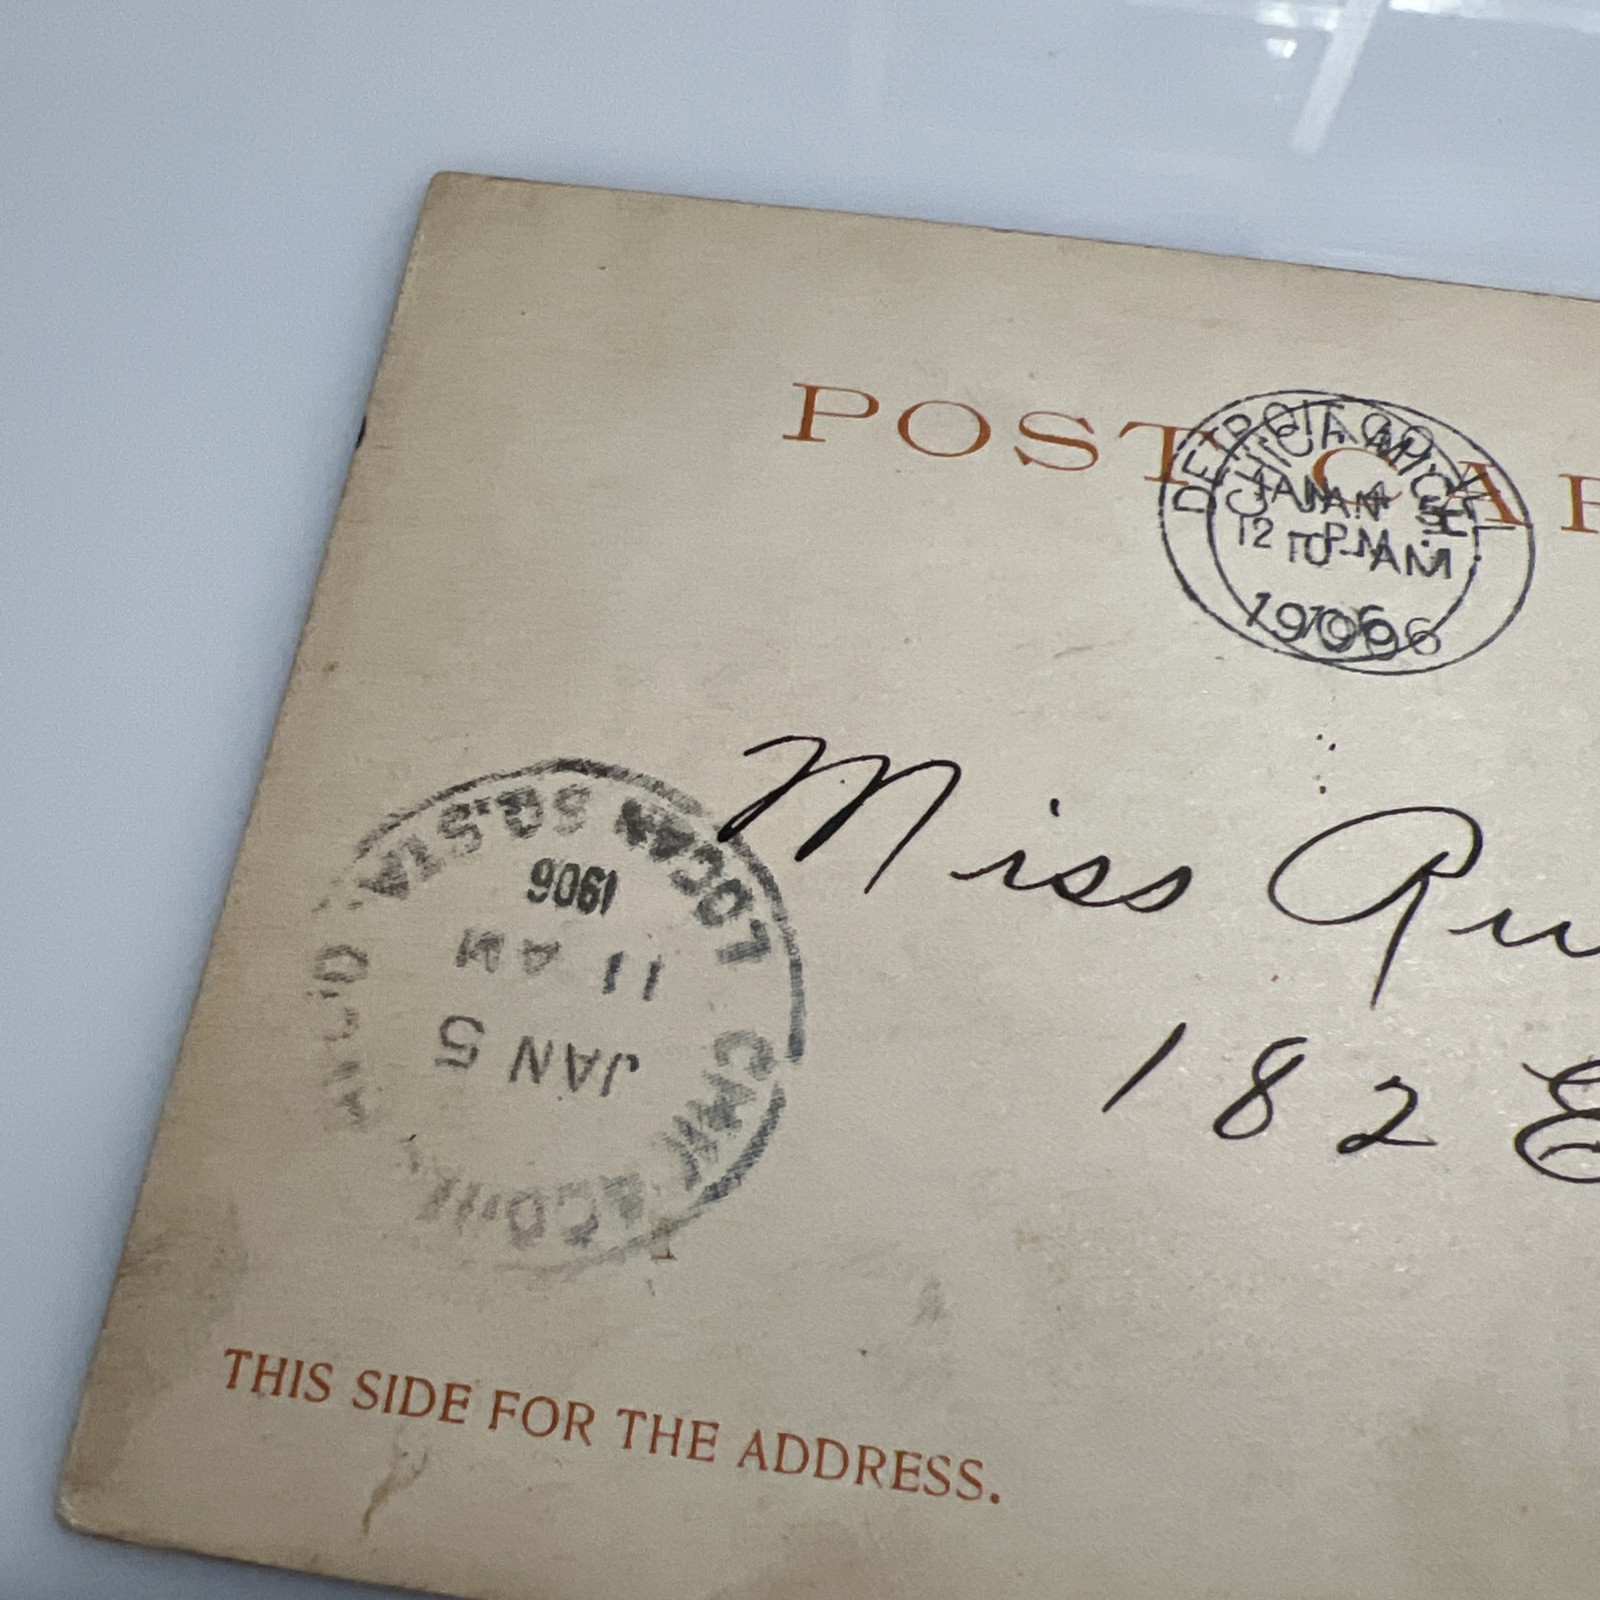 POST CAR
DETROIT, MICH.
CHICAGO, ILL.
JAN 4
JAN 5
12 - PM
10 - AM
1906
1906
Miss Ru
182 E
LOGAN SQ. STA.
1906
11 AM
JAN 5
THIS SIDE FOR THE ADDRESS.